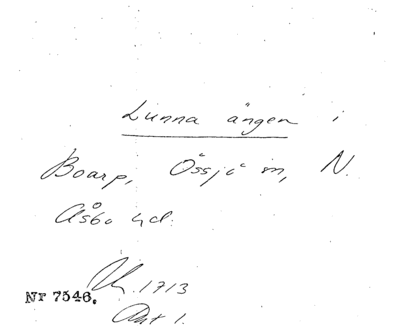 Lunna ängen i
Boarp, Össjö sn, N.
Åsbo hd.
1713
Nr 7546.
Akt 1.